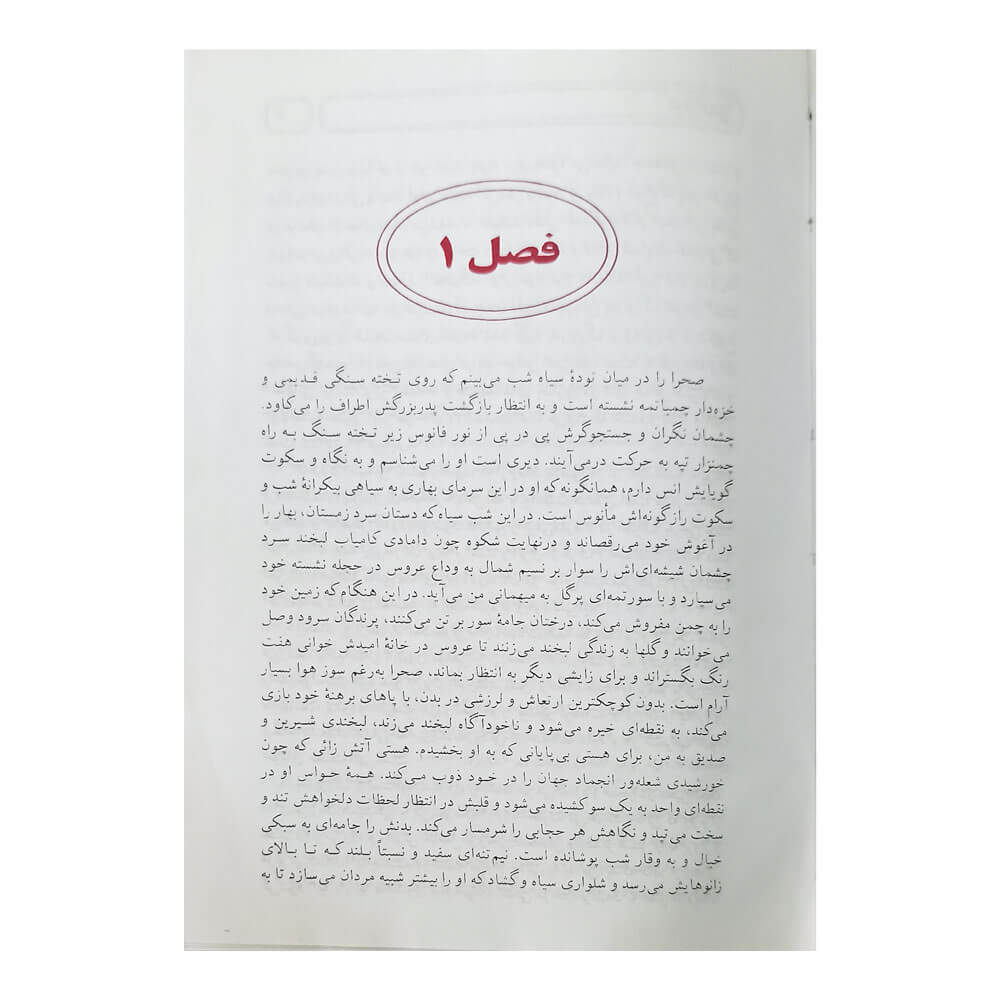 فصل ۱
صحرا را در میان تودهٔ سیاه شب می‌بینم که روی تخته سنگی قدیمی و
خزه‌دار چمباتمه نشسته است و به انتظار بازگشت پدربزرگش اطراف را می‌کاود.
چشمان نگران و جستجوگرش پی در پی از نور فانوس زیر تخته سنگ به راه
چمنزار تپه به حرکت درمی‌آیند. دیری است او را می‌شناسم و به نگاه و سکوت
گویایش انس دارم، همانگونه که او در این سرمای بهاری به سیاهی بیکرانهٔ شب و
سکوت رازگونه‌اش مأنوس است. در این شب سیاه که دستان سرد زمستان، بهار را
در آغوش خود می‌رقصاند و درنهایت شکوه چون دامادی کامیاب لبخند سرد
چشمان شیشه‌ای‌اش را سوار بر نسیم شمال به وداع عروس در حجله نشسته خود
می‌سپارد و با سورتمه‌ای پرگل به میهمانی من می‌آید. در این هنگام که زمین خود
را به چمن مفروش می‌کند، درختان جامهٔ سور بر تن می‌کنند، پرندگان سرود وصل
می‌خوانند و گلها به زندگی لبخند می‌زنند تا عروس در خانهٔ امیدش خوانی هفت
رنگ بگستراند و برای زایشی دیگر به انتظار بماند، صحرا به‌رغم سوز هوا بسیار
آرام است. بدون کوچکترین ارتعاش و لرزشی در بدن، با پاهای برهنهٔ خود بازی
می‌کند، به نقطه‌ای خیره می‌شود و ناخودآگاه لبخند می‌زند، لبخندی شیرین و
صدیق به من، برای هستی بی‌پایانی که به او بخشیدم. هستی آتش زائی که چون
خورشیدی شعله‌ور انجماد جهان را در خود ذوب می‌کند. همهٔ حواس او در
نقطه‌ای واحد به یک سو کشیده می‌شود و قلبش در انتظار لحظات دلخواهش تند و
سخت می‌تپد و نگاهش هر حجابی را شرمسار می‌کند. بدنش را جامه‌ای به سبکی
خیال و به وقار شب پوشانده است. نیم‌تنه‌ای سفید و نسبتاً بلند که تا بالای
زانوهایش می‌رسد و شلواری سیاه و گشاد که او را بیشتر شبیه مردان می‌سازد تا به